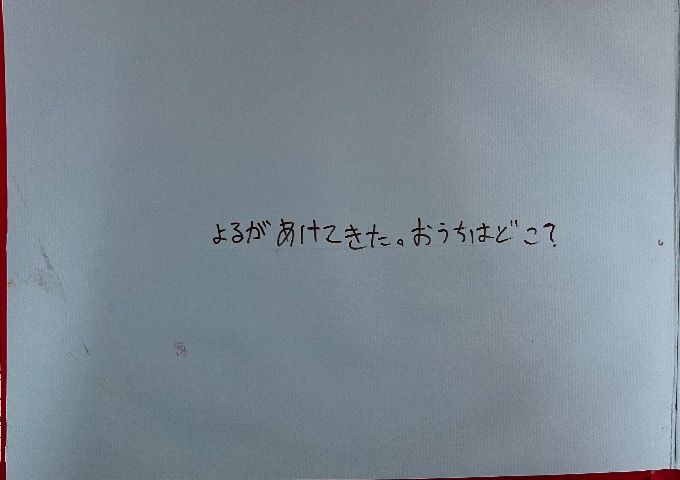 よるがあけてきた。おうちはどこ?